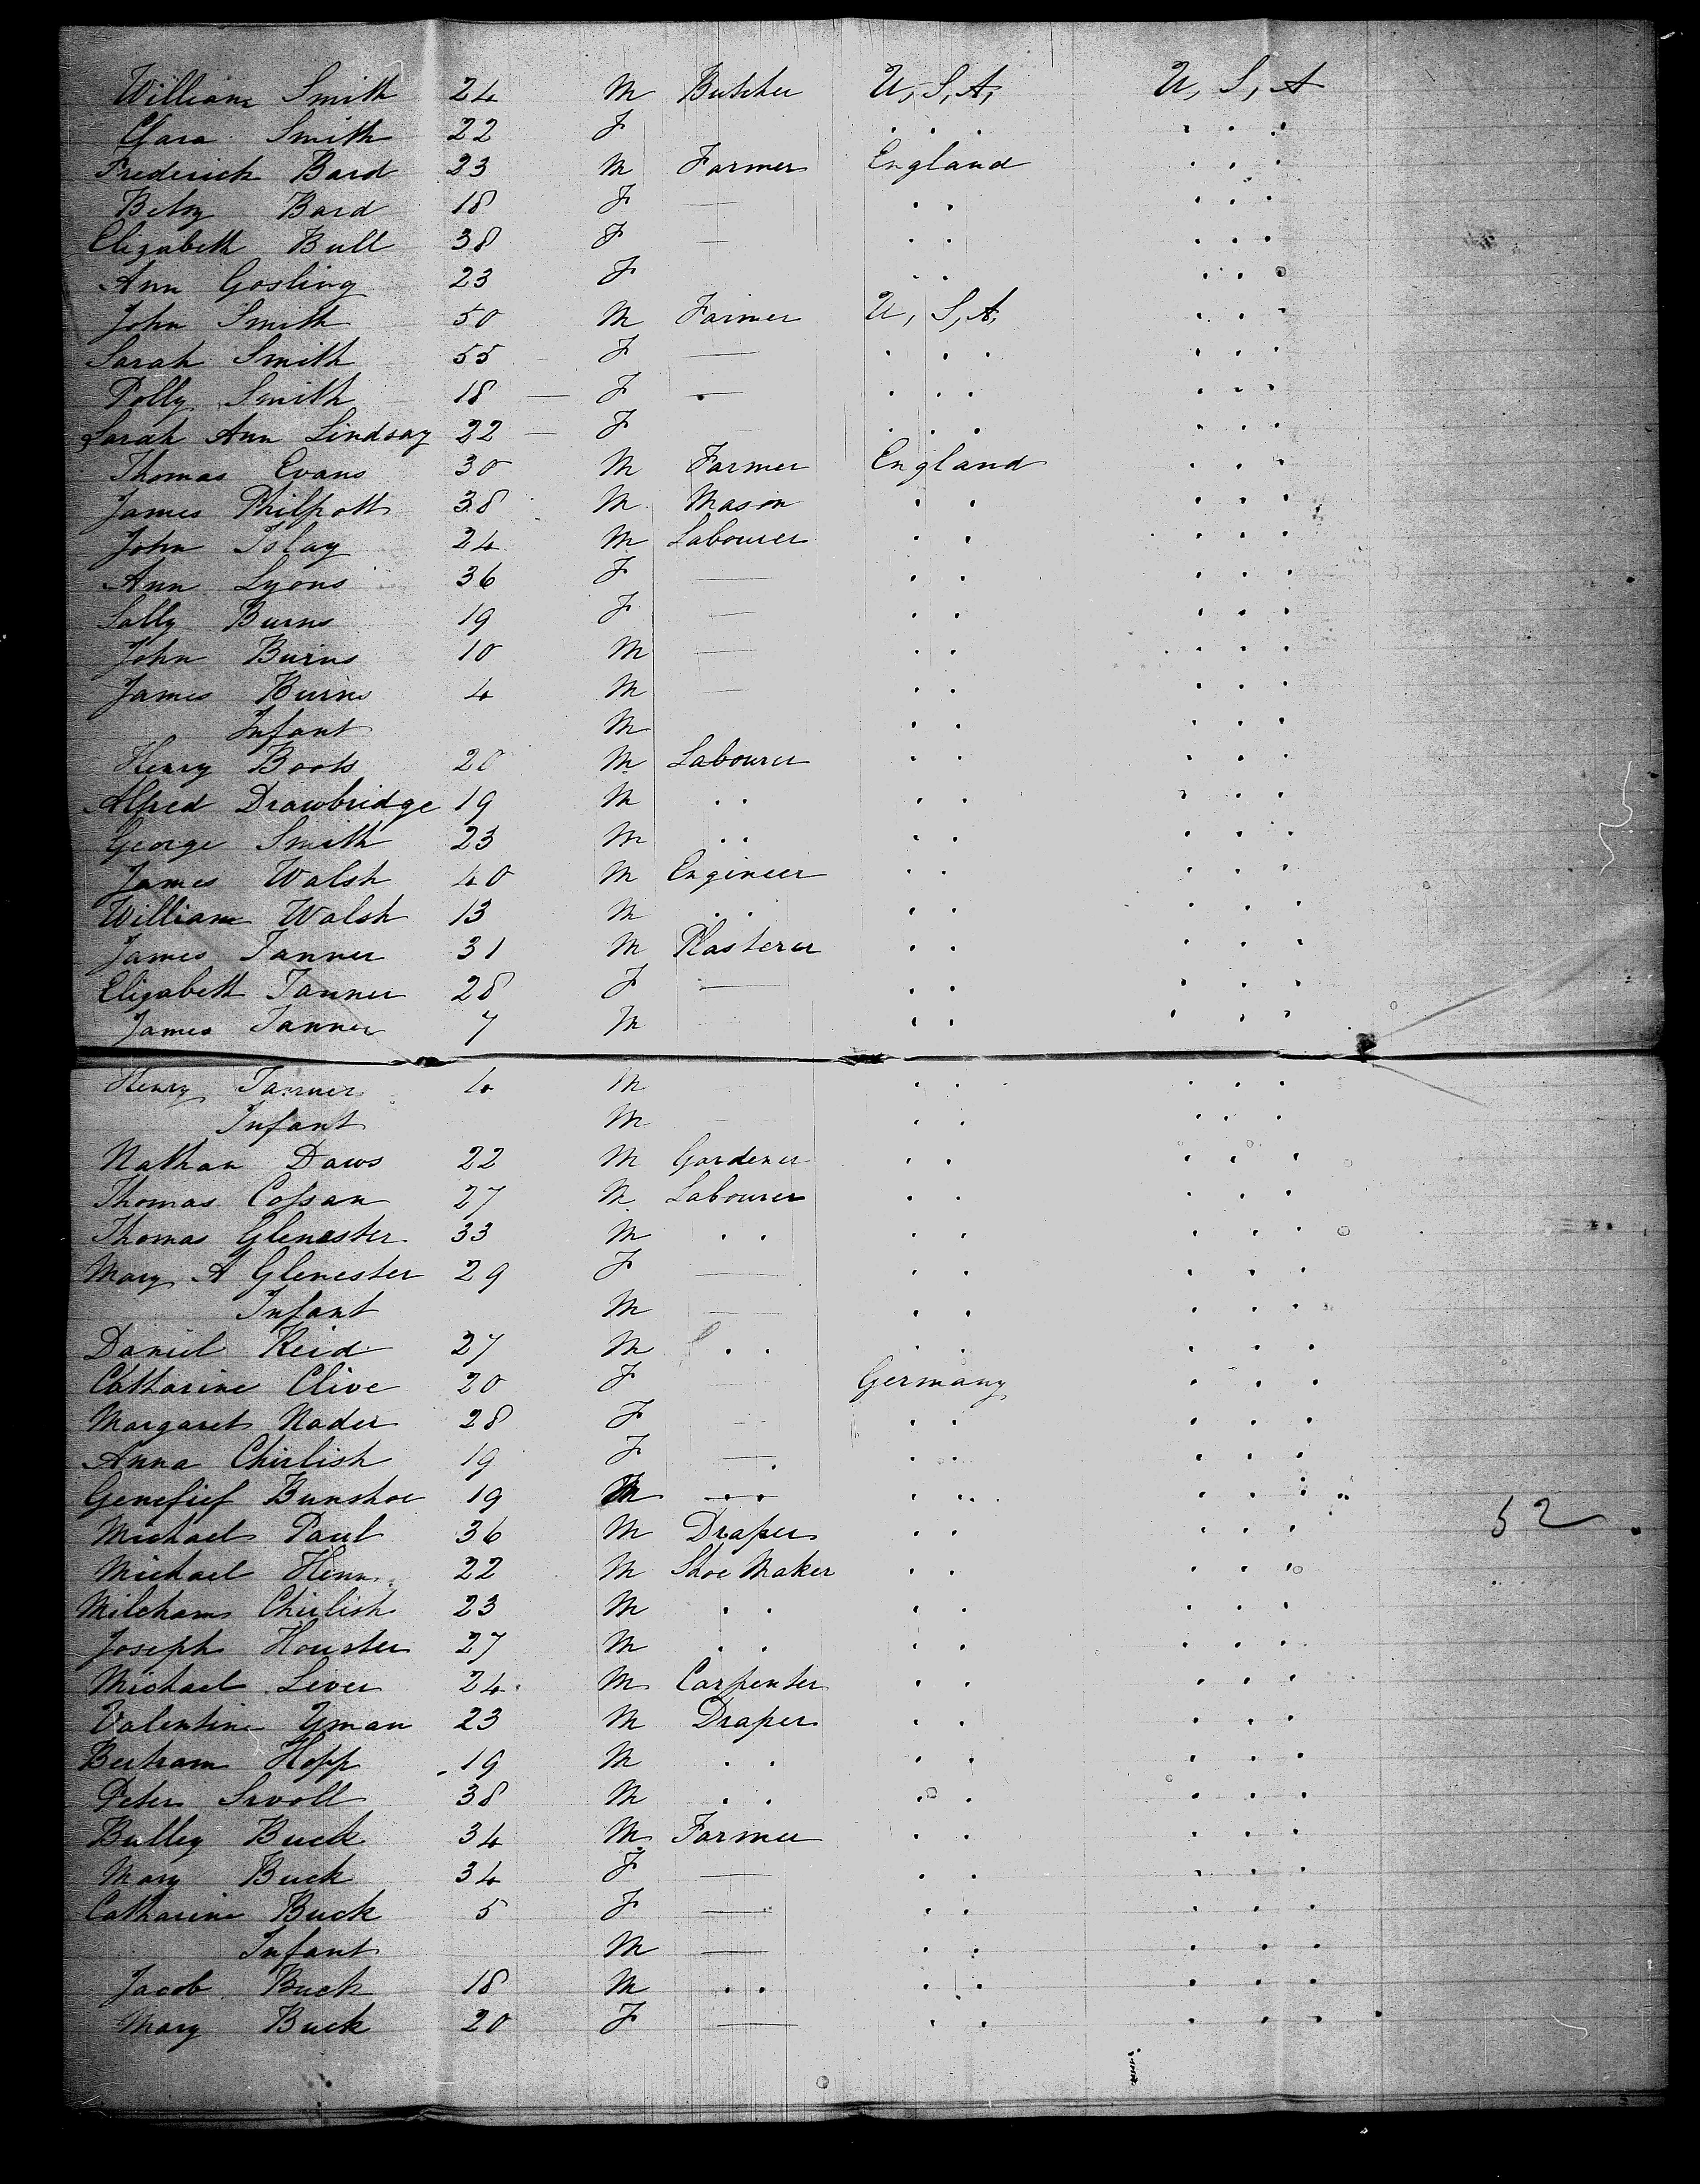 William Smith 24 M Butcher U, S, A, U, S, A
Clara Smith 22 F . . . . . .
Frederick Bard 23 M Farmer England . . .
Betsy Bard 18 F — . . . . .
Elizabeth Bull 38 F — . . . . .
Ann Gosling 23 F . . . . .
John Smith 50 M Farmer U, S, A, . . .
Sarah Smith 55 F — . . . . . .
Polly Smith 18 — F — . . . . . .
Sarah Ann Lindsay 22 — F . . . . . .
Thomas Evans 30 M Farmer England . . .
James Philpott 38 M Mason . . . . .
John Islay 24 M Labourer . . . . .
Ann Lyons 36 F — . . . . .
Sally Burns 19 F — . . . . .
John Burns 10 M — . . . . .
James Burns 4 M — . . . . .
Infant M . . . . .
Henry Boots 20 M Labourer . . . . .
Alfred Drawbridge 19 M . . . . . . .
George Smith 23 M . . . . . . .
James Walsh 40 M Engineer . . . . .
William Walsh 13 M . . . . . . .
James Tanner 31 M Plasterer . . . . .
Elizabeth Tanner 28 F — . . . . .
James Tanner 7 M . . . . .
Henry Tanner 4 M . . . . .
Infant M . . . . .
Nathan Daws 22 M Gardener . . . . .
Thomas Cossan 27 M Labourer . . . . .
Thomas Glenester 33 M . . . . . . .
Mary A Glenester 29 F — . . . . .
Infant M — . . . . .
Daniel Reid 27 M . . . . . . .
Catharine Clive 20 F Germany . . .
Margaret Nader 28 F — . . . . .
Anna Chirlish 19 F — . . . . .
Genefief Bunshoe 19 M . . . . . . .
Michael Paul 36 M Draper . . . . . 52
Michael Henn 22 M Shoe Maker . . . . .
Milcham Chirlish 23 M . . . . . . .
Joseph Houster 27 M . . . . . . .
Michael Lever 24 M Carpenter . . . . .
Valentine Yman 23 M Draper . . . . .
Bertram Hopp 19 M . . . . . . .
Peter Srvoll 38 M . . . . . . .
Bulley Buck 34 M Farmer . . . . .
Mary Buck 34 F — . . . . .
Catharine Buck 5 F — . . . . .
Infant M — . . . . .
Jacob Buck 18 M . . . . . . .
Mary Buck 20 F — . . . . .